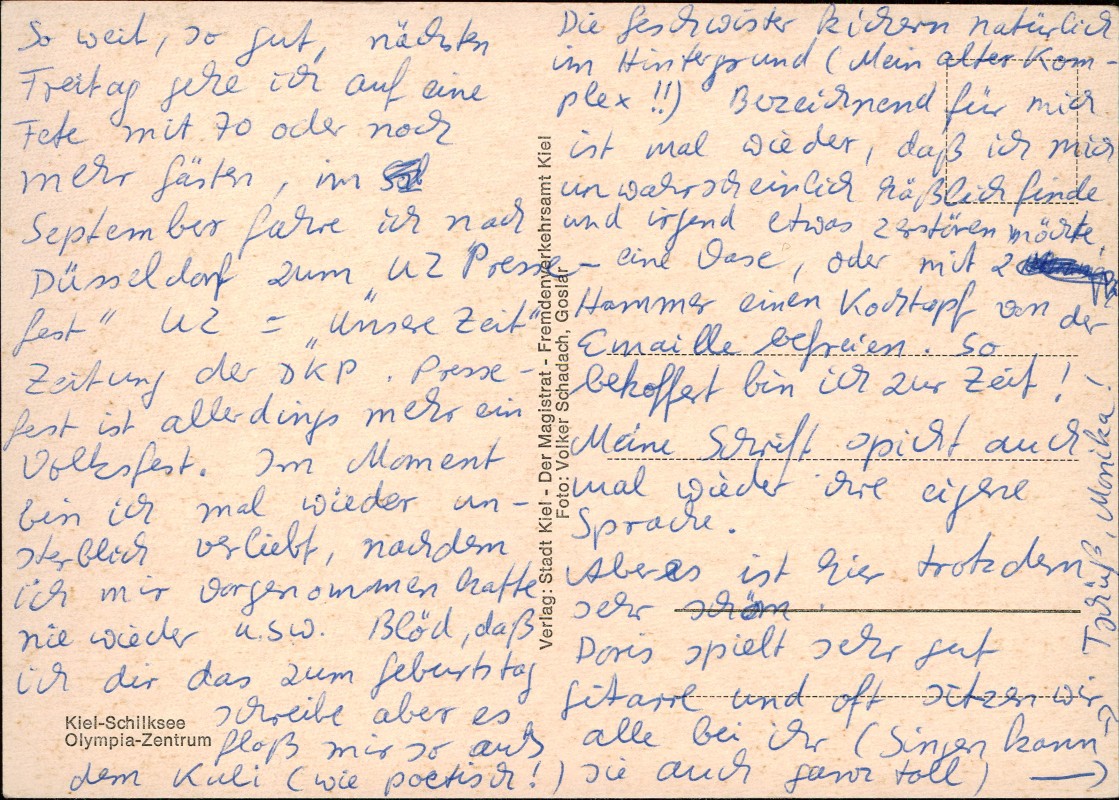 So weit, so gut, nächsten
Freitag gehe ich auf eine
Fete mit 70 oder noch
mehr Gästen, im
September fahre ich nach
Düsseldorf zum UZ Presse-
fest" UZ = "Unsere Zeit"
Zeitung der DKP. Presse-
fest ist allerdings mehr ein
Volksfest. Im Moment
bin ich mal wieder un-
sterblich verliebt, nachdem
ich mir vorgenommen hatte
nie wieder u.s.w. Blöd, daß
ich dir das zum Geburtstag
schreibe aber es
floß mir so aus
dem Kuli (wie poetisch!)
Kiel-Schilksee
Olympia-Zentrum
Verlag: Stadt Kiel - Der Magistrat - Fremdenverkehrsamt Kiel
Foto: Volker Schadach, Goslar
Die Geschwister kichern natürlich
im Hintergrund (Mein alter Kom-
plex!!) Bezeichnend für mich
ist mal wieder, daß ich mich
unwahrscheinlich häßlich finde
und irgend etwas zerstören möchte,
eine Vase, oder mit
Hammer einen Kochtopf von der
Emaille befreien. So
bekoffert bin ich zur Zeit!
Meine Schrift spricht auch
mal wieder ihre eigene
Sprache.
Aber es ist hier trotzdem
sehr schön.
Doris spielt sehr gut
Gitarre und oft sitzen wir
alle bei ihr (Singen kann
sie auch ganz toll)
Tschüß, Monika